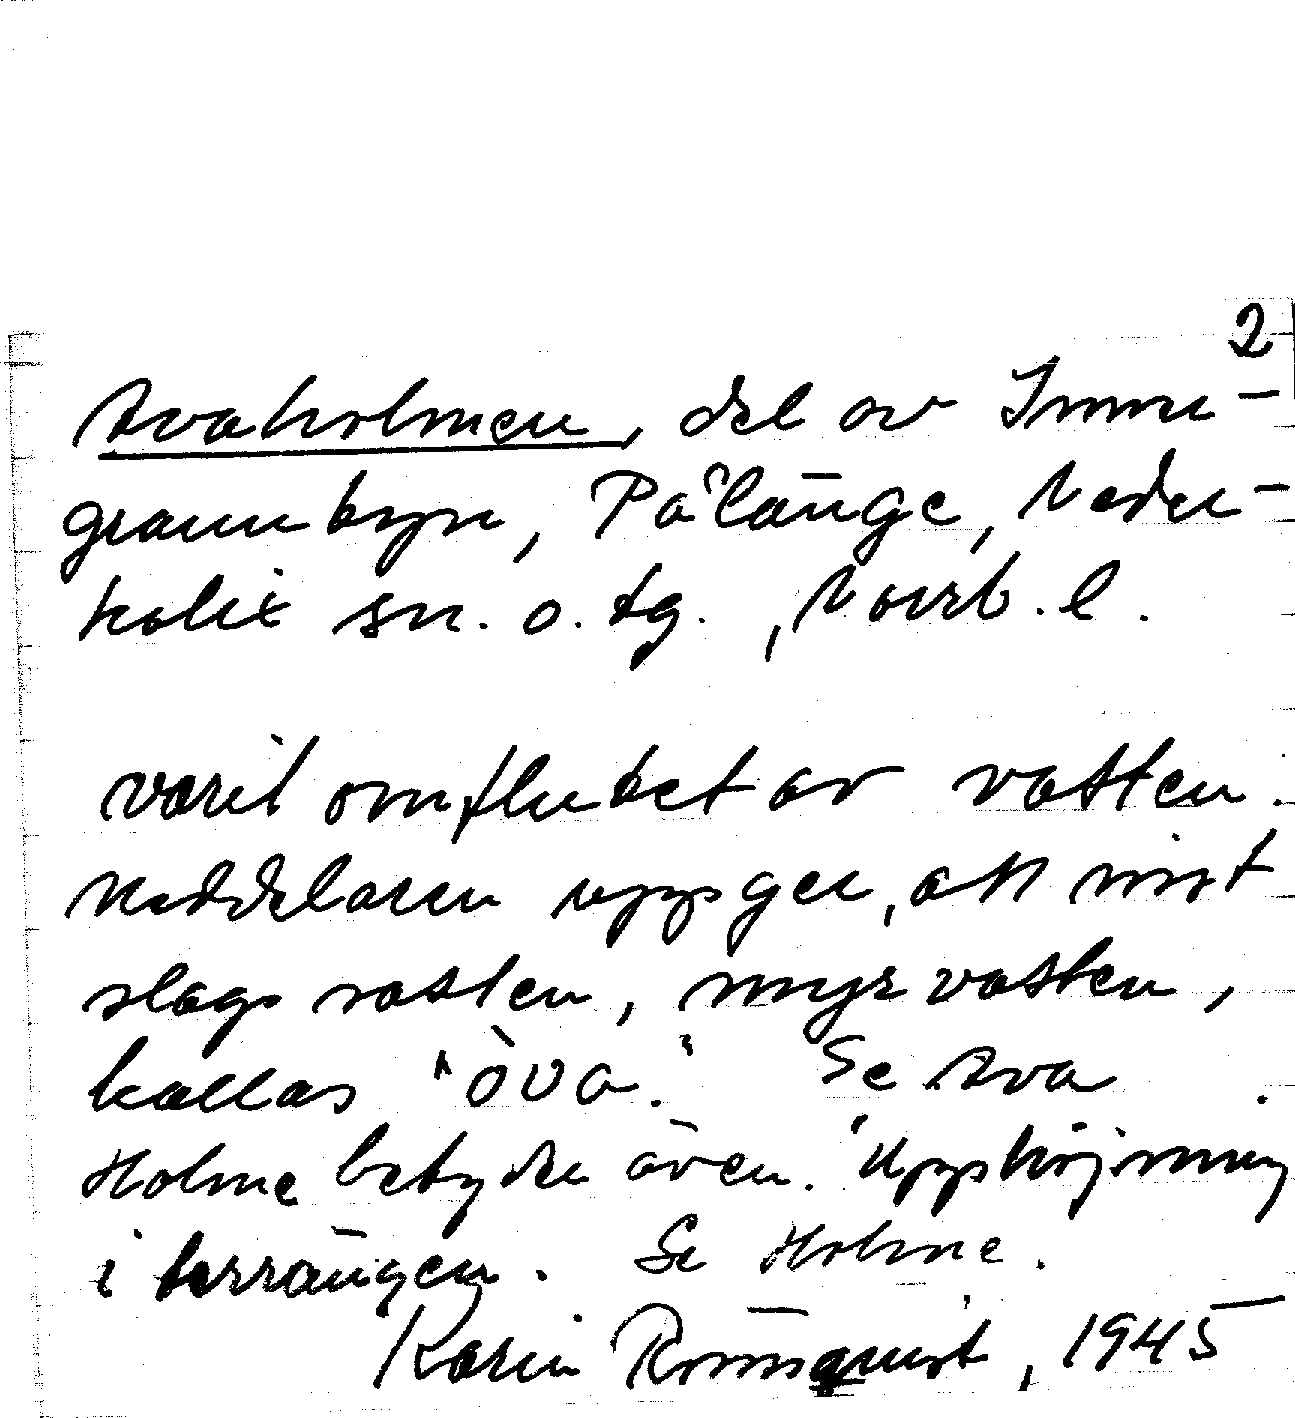 2
Avaholmen, del av Innu-
granbyn, Pålänge, Neder-
kalix sn. o. tg., Norrb. l.
varit omflutet av vatten.
Meddelaren uppger, att visst
slags vatten, myrvatten,
kallas "åva." Se Ava.
Holme betyder även "upphöjning
i terrängen. Se Holme.
Karin Rönnquist, 1945